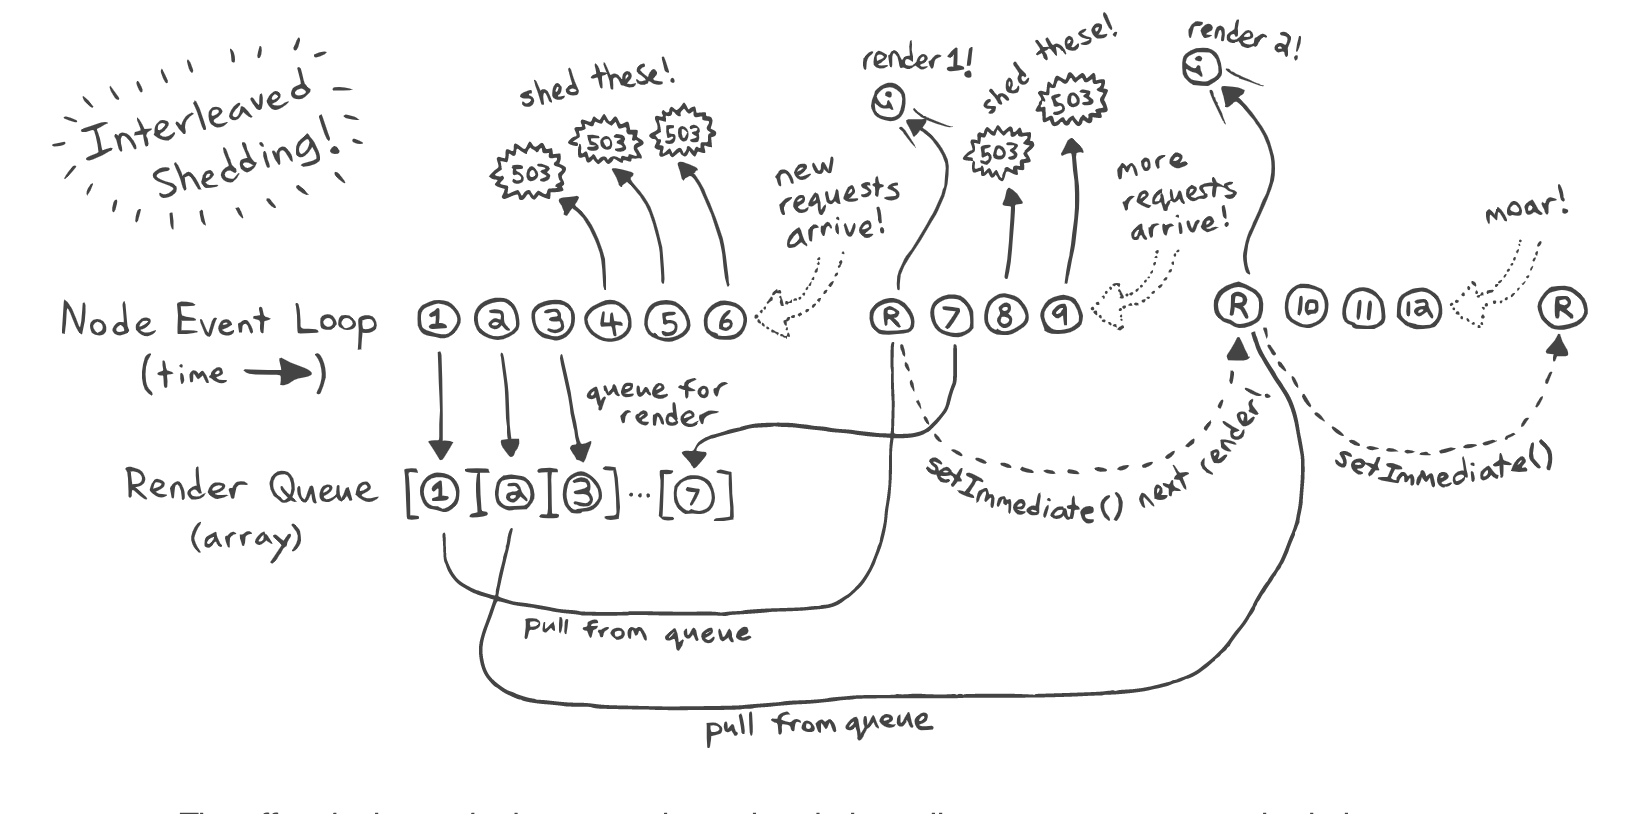 Interleaved
Shedding!
shed these!
503
503
503
new
requests
arrive!
render 1!
shed these!
503
503
more
requests
arrive!
render 2!
moar!
Node Event Loop
(time
)
1 2 3 4 5 6 R 7 8 9 R 10 11 12 R
queue for
render
Render Queue
(array)
[1][2][3]...[7]
setImmediate() next render!
setImmediate()
pull from queue
pull from queue